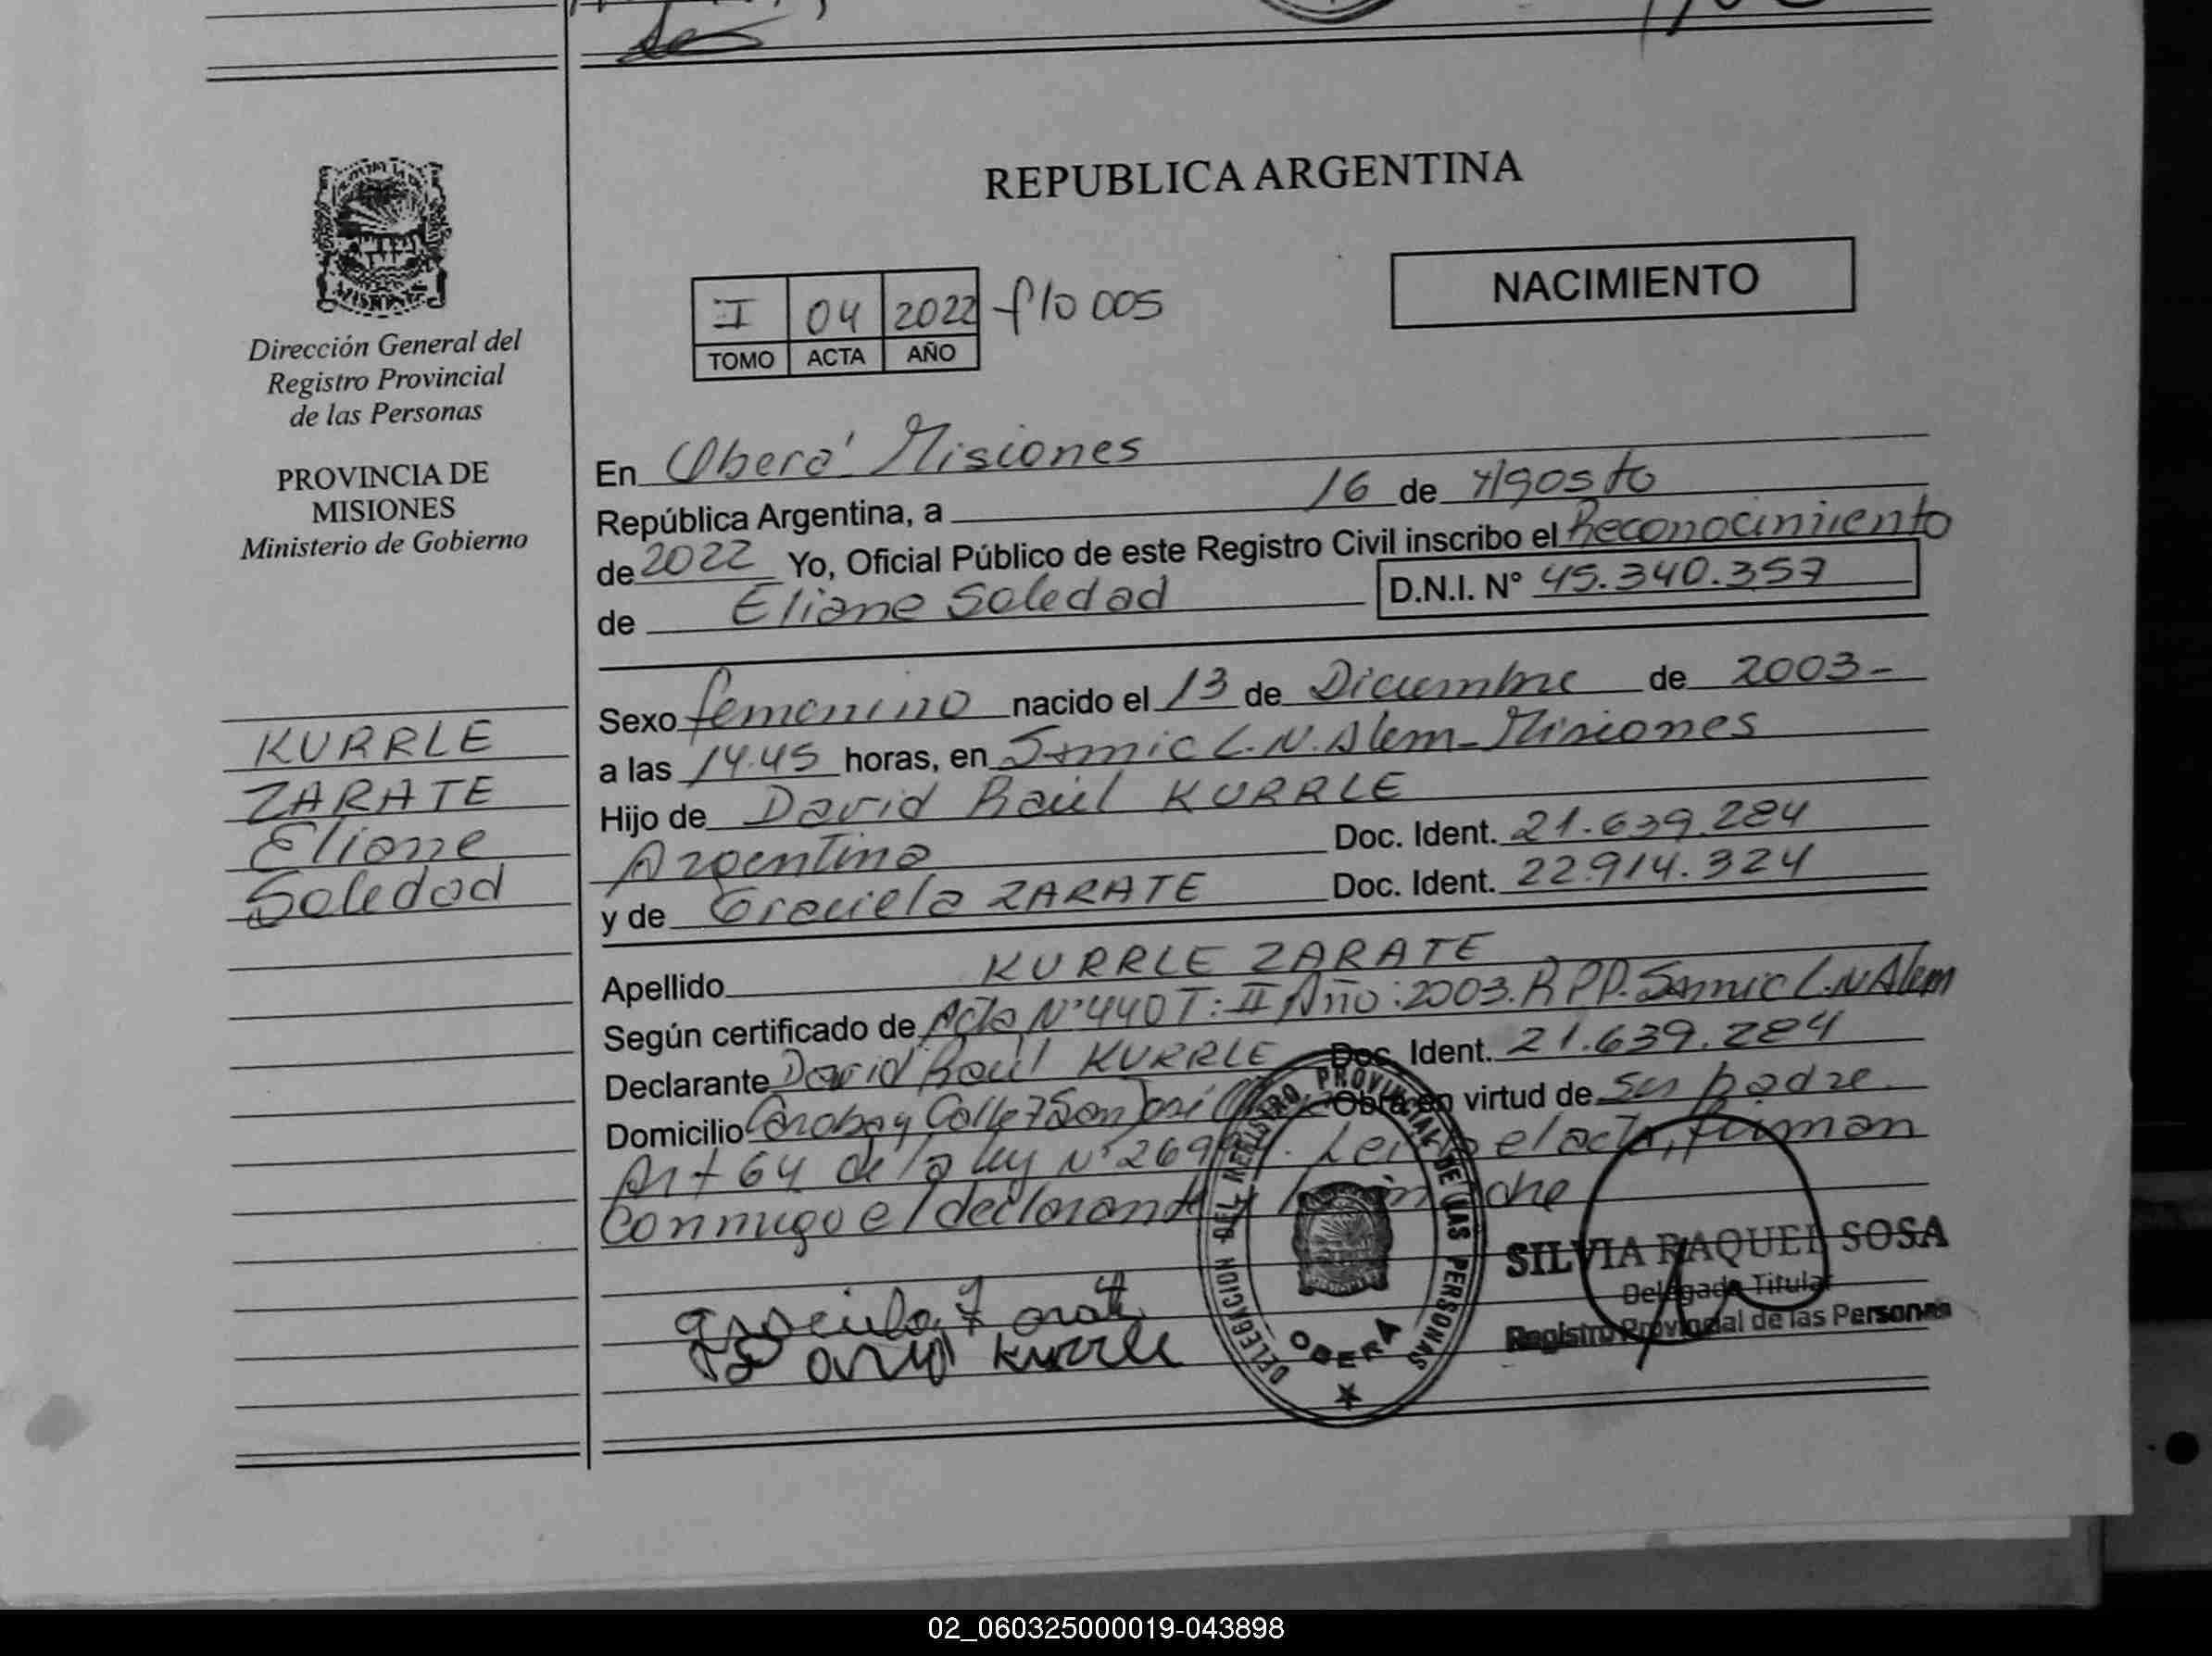 REPUBLICA ARGENTINA
NACIMIENTO
I 04 2022 flo 005
TOMO ACTA AÑO
Dirección General del
Registro Provincial
de las Personas
PROVINCIA DE
MISIONES
Ministerio de Gobierno
KURRLE
ZARATE
Eliane
Soledad
En Oberá Misiones
República Argentina, a 16 de Agosto
de 2022 Yo, Oficial Público de este Registro Civil inscribo el Reconocimiento
de Eliane Soledad D.N.I. N° 45.340.357
Sexo femenino nacido el 13 de Diciembre de 2003-
a las 14.45 horas, en Samic L.N. Alem-Misiones
Hijo de David Raúl KURRLE
Argentino Doc. Ident. 21.639.284
y de Graciela ZARATE Doc. Ident. 22.914.324
Apellido KURRLE ZARATE
Según certificado de Acta N° 440 T: II Año: 2003. R.P.P. Samic L.N Alem
Declarante David Raúl KURRLE Doc. Ident. 21.639.284
Domicilio y Calle 7 San José Obra en virtud de su padre.
Art 64 de la ley N° el acta, firman
Conmigo el declarante y
David Kurrle
DELEGACION DEL REGISTRO PROVINCIAL DE LAS PERSONAS
OBERA
SILVIA RAQUEL SOSA
Delegada Titular
Registro Provincial de las Personas
02_060325000019-043898